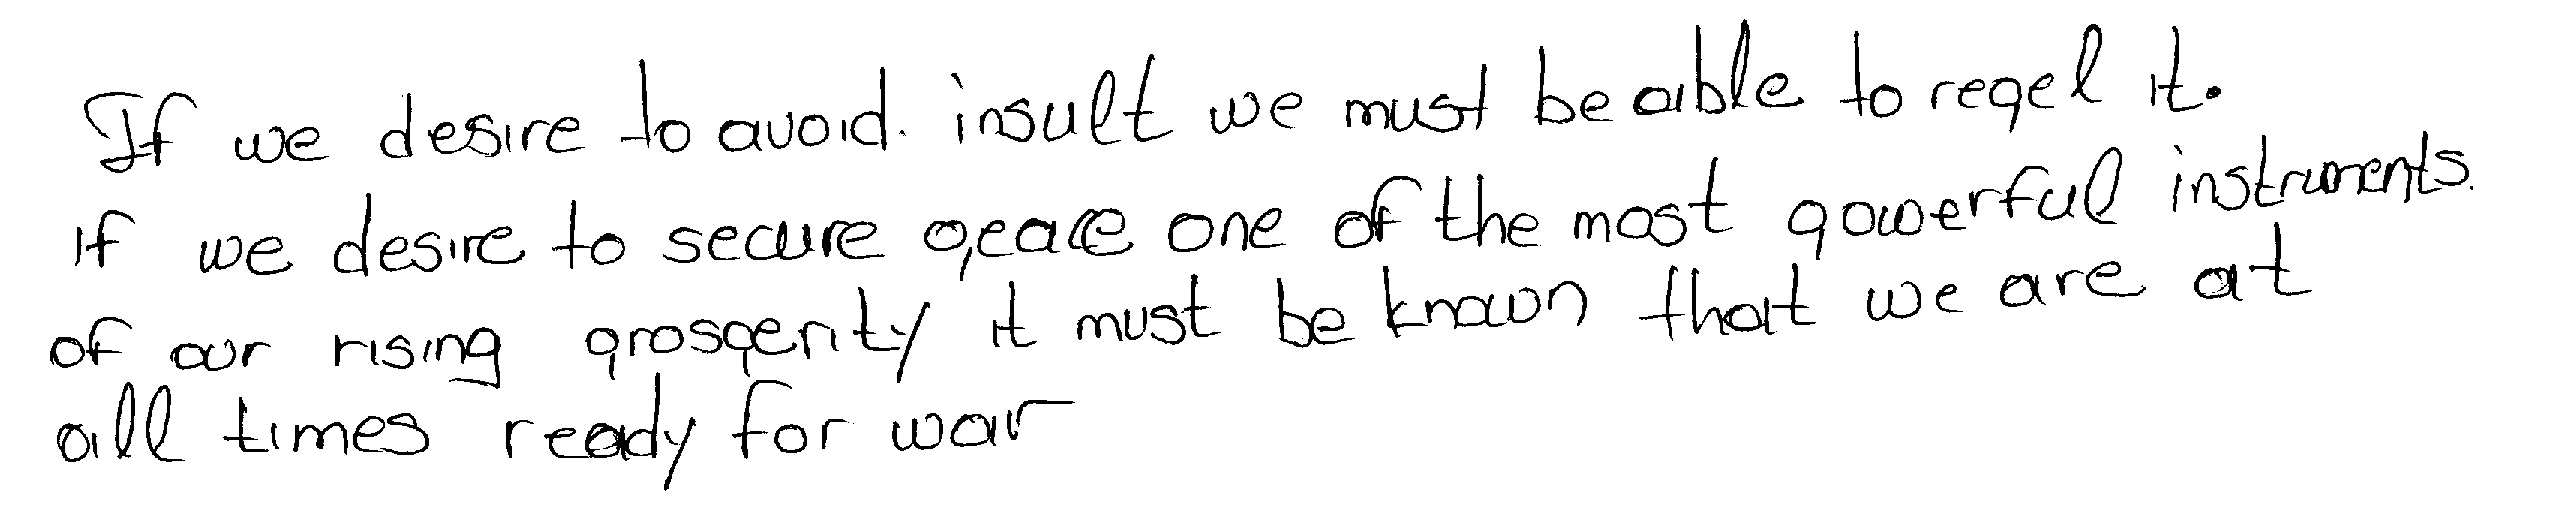 If we desire to avoid. insult we must be able to repel it.
If we desire to secure peace one of the most powerful instruments.
of our rising prosperity it must be known that we are at
all times ready for war